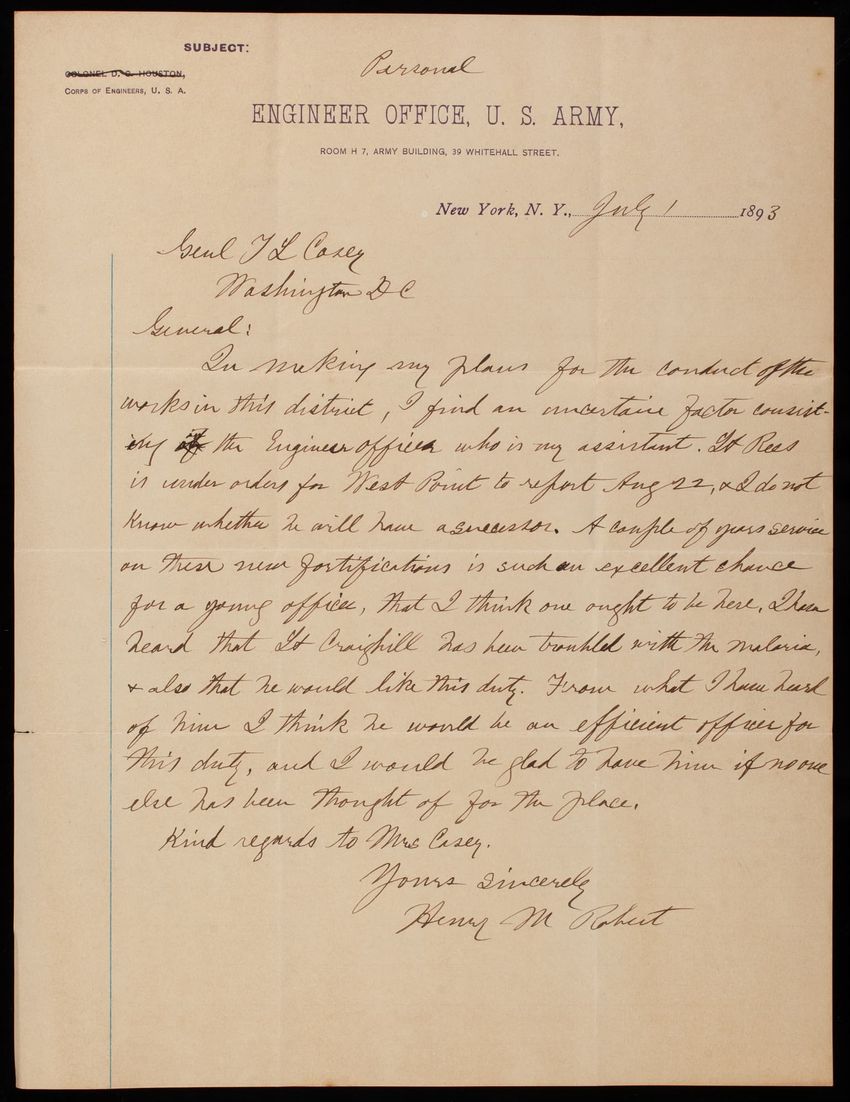 SUBJECT:
Personal
COLONEL D. C. HOUSTON,
CORPS OF ENGINEERS, U. S. A.
ENGINEER OFFICE, U. S. ARMY,
ROOM H 7, ARMY BUILDING, 39 WHITEHALL STREET.
New York, N. Y., July 1 1893
Genl T L Casey
Washington D C
General:
In making my plans for the conduct of the
works in this district, I find an uncertain factor consist-
ing if the Engineer officer who is my assistant. Lt Rees
is under orders for West Point to report Aug 22, & I do not
know whether he will have a successor. A couple of years service
on these new fortifications is such an excellent chance
for a young officer, that I think one ought to be here. I have
heard that Lt Craighill has been troubled with the malaria,
& also that he would like this duty. From what I have heard
of him I think he would be an efficient officer for
this duty, and I would be glad to have him if no one
else has been thought of for the place.
Kind regards to Mrs Casey.
Yours sincerely
Henry M Robert